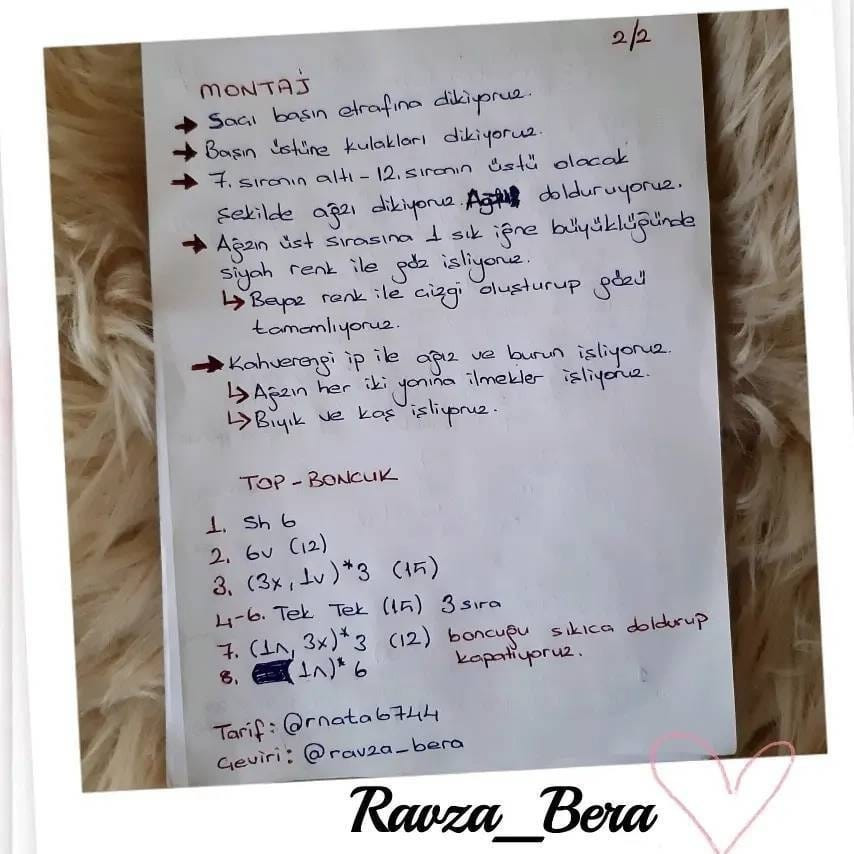 2/2
MONTAJ
→ Saçı başın etrafına dikiyoruz.
→ Başın üstüne kulakları dikiyoruz.
→ 7. sıranın altı - 12. sıranın üstü olacak
şekilde ağzı dikiyoruz. dolduruyoruz.
→ Ağzın üst sırasına 1 sık iğne büyüklüğünde
siyah renk ile göz işliyoruz.
↳ Beyaz renk ile çizgi oluşturup gözü
tamamlıyoruz.
→ Kahverengi ip ile ağız ve burun işliyoruz.
↳ Ağzın her iki yanına ilmekler işliyoruz.
↳ Bıyık ve kaş işliyoruz.
TOP - BONCUK
1. Sh 6
2. 6v (12)
3. (3x, 1v)*3 (15)
4-6. Tek Tek (15) 3 sıra
7. (1ʌ, 3x)*3 (12) boncuğu sıkıca doldurup
kapatıyoruz.
8. (1ʌ)*6
Tarif: @rnata6744
Geviri: @ravza_bera
Ravza_Bera